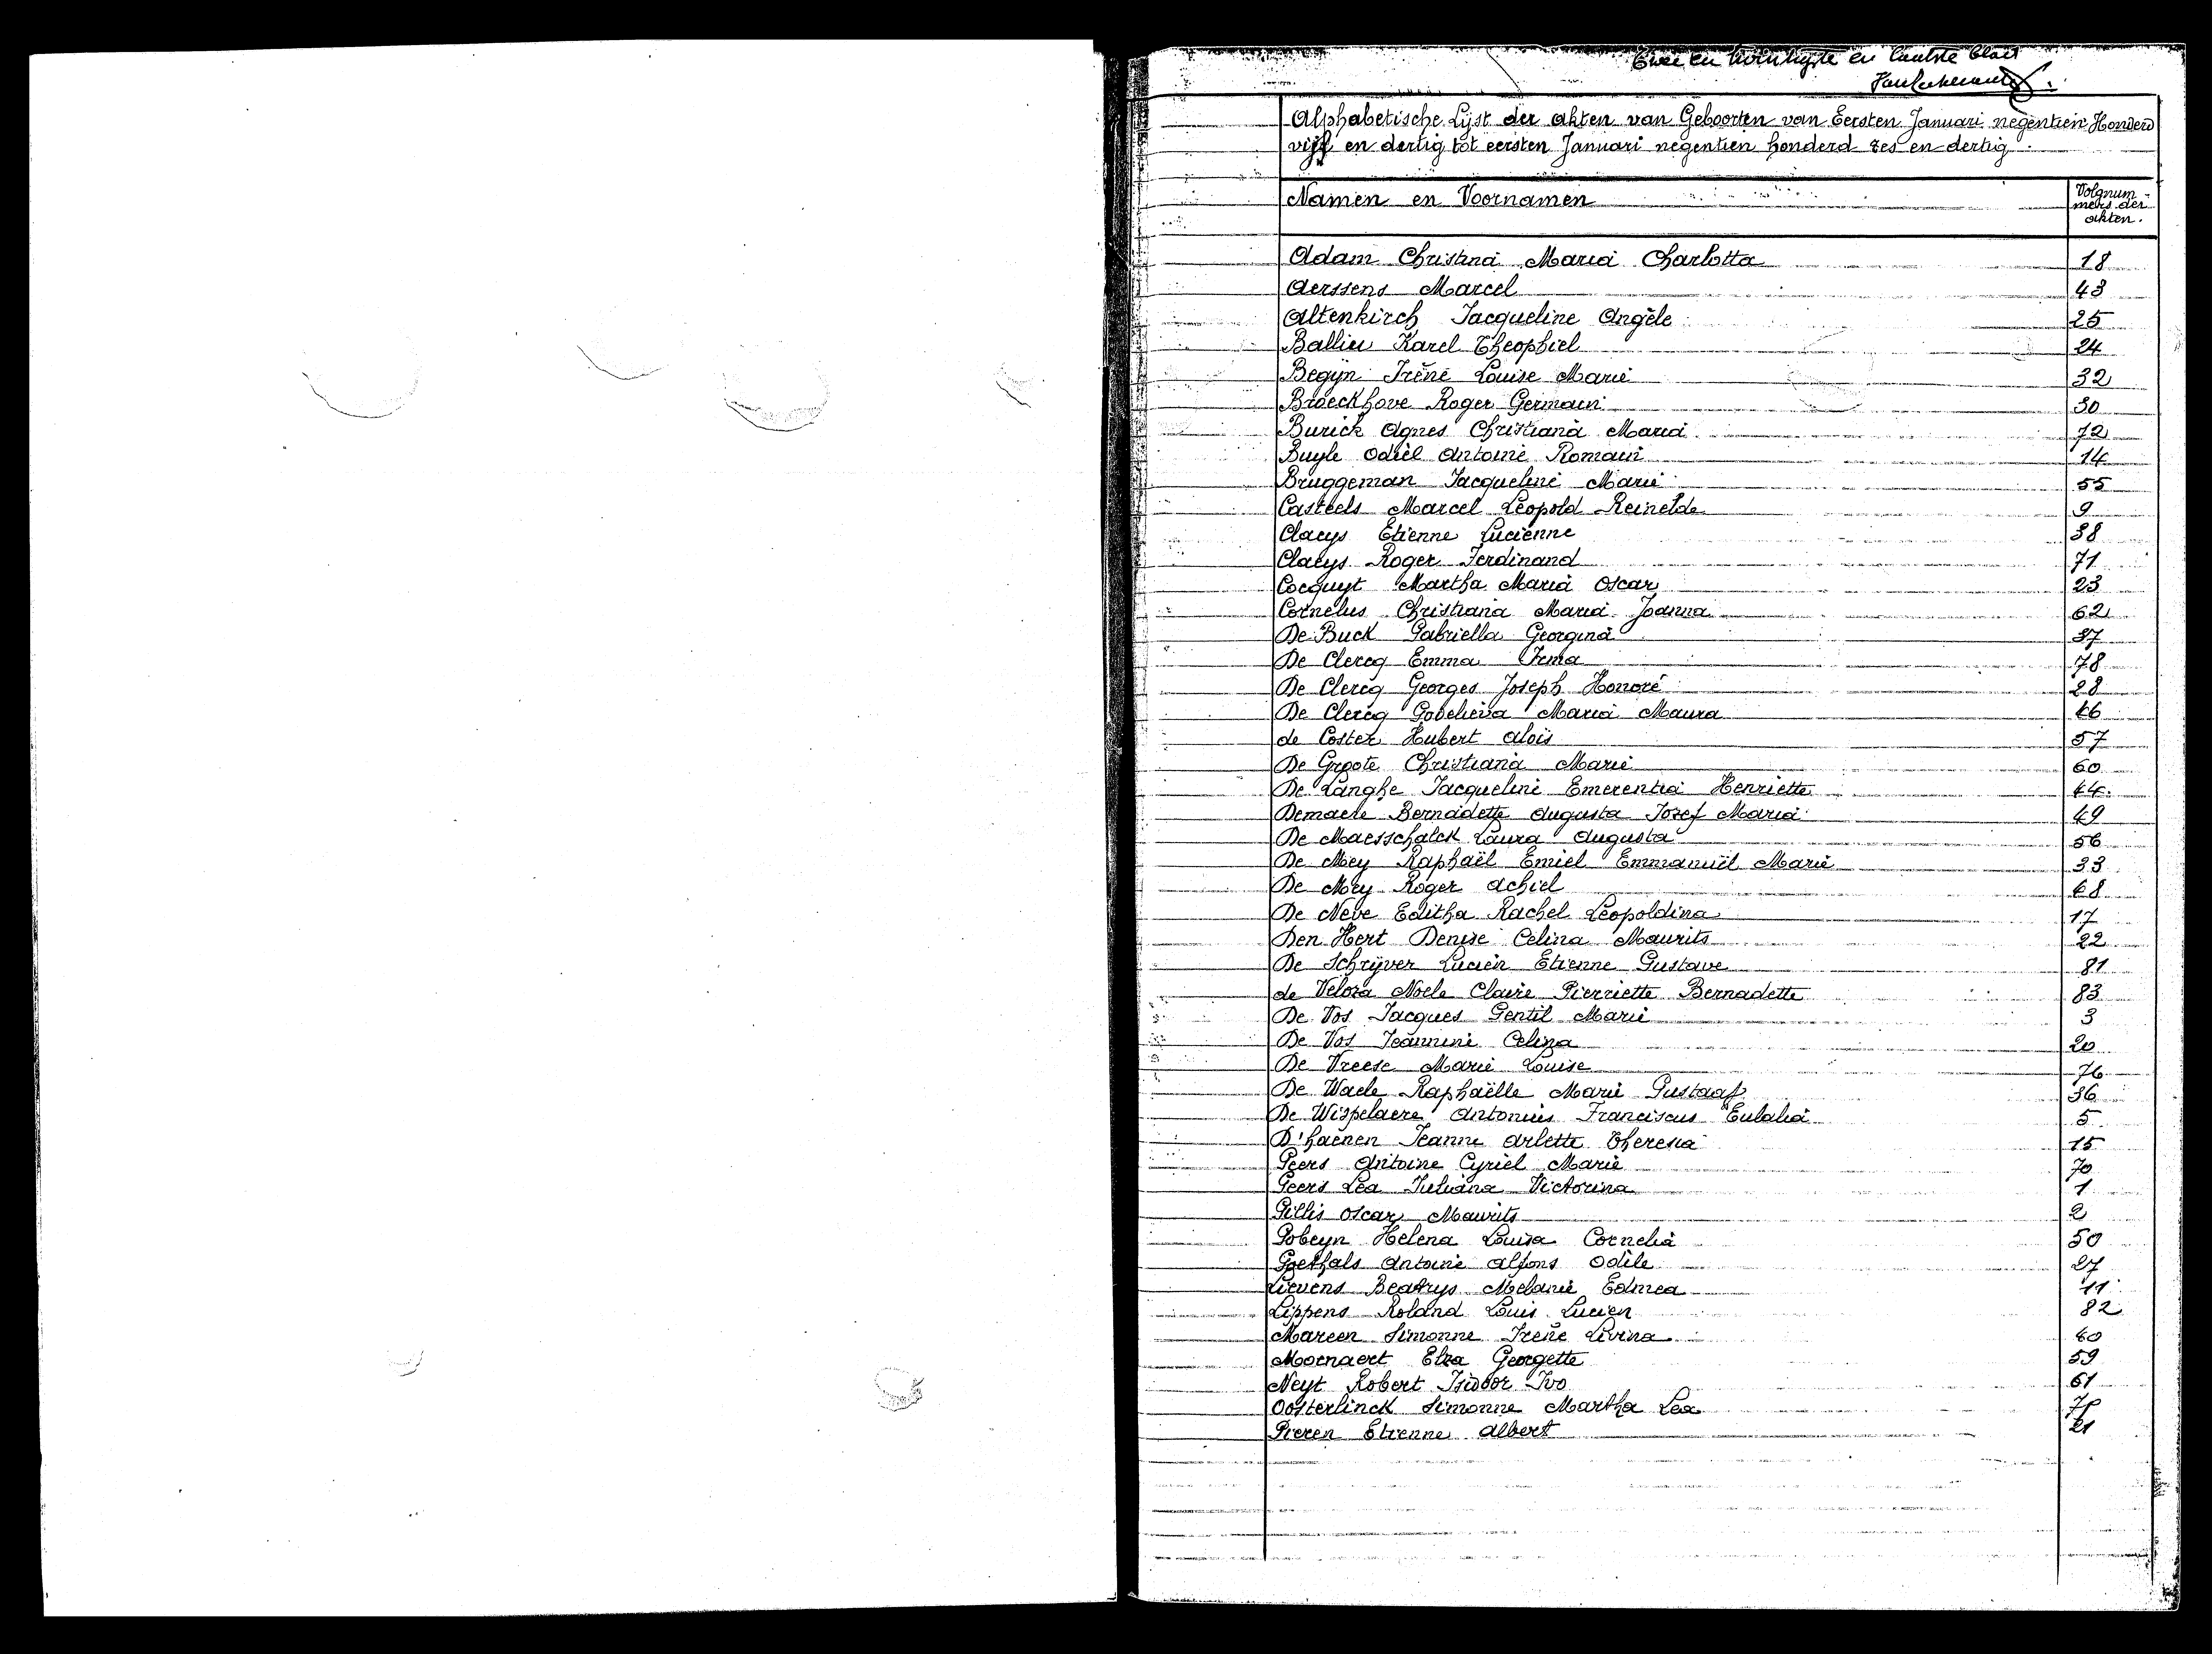 Twee en twintigste en laatste blad
Alphabetische Lijst der akten van Geboorten van Eersten Januari negentien Honderd
vijf en dertig tot eersten Januari negentien honderd zes en dertig
Namen en Voornamen
Volgnum-
mers der
akten.
Adam Christina Maria Charlotta 18
Aerssens Marcel 43
Altenkirch Jacqueline Angèle 25
Balliu Karel Theophiel 24
Begijn Irène Louise Marie 32
Broeckhove Roger Germain 30
Burick Agnes Christiana Maria 72
Buyle Odiel Antoine Romain 14
Bruggeman Jacqueline Marie 55
Casteels Marcel Leopold Reinelde 9
Claeys Etienne Lucienne 38
Claeys Roger Ferdinand 71
Cocquyt Martha Maria Oscar 23
Cornelus Christiana Maria Joanna 62
De Buck Gabriella Georgina 37
De Clercq Emma Irma 78
De Clercq Georges Joseph Honoré 28
De Clercq Godelieva Maria Maura 46
de Coster Hubert Aloïs 57
De Groote Christiana Marie 60
De Langhe Jacqueline Emerentia Henriette 44
Demaere Bernadette Augusta Jozef Maria 49
De Maesschalck Laura Augusta 56
De Mey Raphaël Emiel Emmanuël Marie 33
De Mey Roger Achiel 68
De Neve Editha Rachel Leopoldina 17
Den Hert Denise Celina Maurits 22
De Schrijver Lucien Etienne Gustave 81
de Veloza Noele Claire Pierriette Bernadette 83
De Vos Jacques Gentil Marie 3
De Vos Jeannine Celina 20
De Vreese Marie Louise 76
De Waele Raphaëlle Marie Gustaaf 36
De Wispelaere Antonius Franciscus Eulalia 5
D'haenen Jeanne Arlette Theresia 15
Geers Antoine Cyriel Marie 70
Geers Lea Juliana Victorina 1
Gillis Oscar Maurits 2
Gobeyn Helena Louisa Cornelia 50
Goethals Antoine Alfons Odile 27
Lievens Beatrys Melanie Edmea 11
Lippens Roland Louis Lucien 82
Mareen Simonne Irene Livina 40
Moernaert Elza Georgette 59
Neyt Robert Isidoor Ivo 61
Oosterlinck Simonne Martha Lea
Pieren Etienne Albert 21